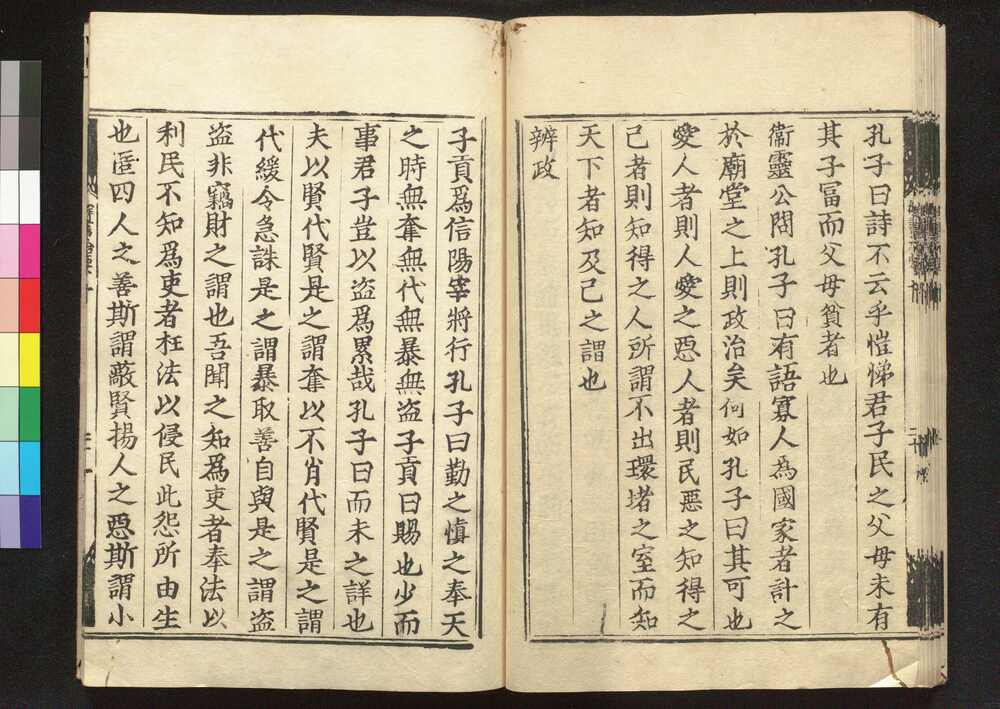 孔子曰詩不云乎愷悌君子民之父母未有
其子冨而父母貧者也
衞靈公問孔子曰有語寡人爲國家者計之
於廟堂之上則政治矣何如孔子曰其可也
愛人者則人愛之惡人者則民惡之知得之
己者則知得之人所謂不出環堵之室而知
天下者知及己之謂也
辨政
子貢爲信陽宰將行孔子曰勤之愼之奉天
之時無奪無代無暴無盗子貢曰賜也少而
事君子豈以盗爲累哉孔子曰而未之詳也
夫以賢代賢是之謂奪以不肖代賢是之謂
代緩令急誅是之謂暴取善自與是之謂盗
盗非竊財之謂也吾聞之知爲吏者奉法以
利民不知爲吏者枉法以侵民此怨所由生
也匿四人之善斯謂蔽賢揚人之惡斯謂小